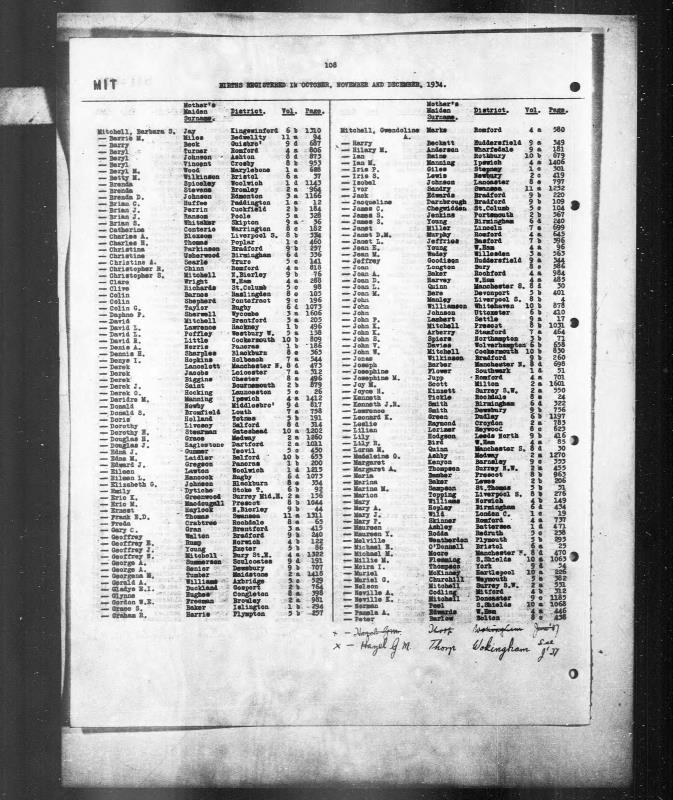 108
MIT
BIRTHS REGISTERED IN OCTOBER, NOVEMBER AND DECEMBER, 1934.
Mother's Maiden Surname. District. Vol. Page.
Mitchell, Barbara S. Jay Kingswinford 6 b 1310
— Barrie M. Miles Bedwellty 11 a 94
— Barry Beck Guisbro' 9 d 687
— Beryl Turner Romford 4 a 806
— Beryl Johnson Ashton 8 d 873
— Beryl Vincent Crosby 8 b 953
— Beryl M. Wood Marylebone 1 a 688
— Betty M. Wilkinson Bristol 6 a 37
— Brenda Spinkey Woolwich 1 d 1143
— Brenda Stevens Bromley 2 a 964
— Brenda D. Johnson Edmonton 3 a 1166
— Brian C. Duffee Paddington 1 a 12
— Brian J. Perrin Cuckfield 2 b 184
— Brian J. Ransom Poole 5 a 328
— Brian S. Whitaker Skipton 9 a 36
— Catherine Conterie Warrington 8 c 182
— Charles A. Bloxsom Liverpool S. 8 b 334
— Charles R. Thomas Poplar 1 c 460
— Christina Parkinson Bradford 9 b 257
— Christine Usherwood Birmingham 6 d 336
— Christine A. Searle Truro 5 c 141
— Christopher R. Chinn Romford 4 a 818
— Christopher S. Mitchell N.Bierley 9 b 76
— Clare Wright W.Ham 4 a 288
— Clive Richards St.Columb 5 c 98
— Colin Barnes Haslingden 8 e 105
— Colin Shepherd Pontefract 9 c 196
— Colin L. Taylor Rugby 6 d 1073
— Daphne P. Sherwell Wycombe 3 a 1606
— David Mitchell Brentford 3 a 205
— David L. Lawrence Hackney 1 b 496
— David L. Poffley Westbury W. 5 a 138
— David R. Little Cockermouth 10 b 809
— Denis A. Norris Pancras 1 b 186
— Dennis H. Sharples Blackburn 8 e 365
— Denys I. Hopkins Holbeach 7 a 544
— Derek Lancelott Manchester N. 8 d 473
— Derek Jacobs Leicester 7 a 312
— Derek A. Biggins Chester 8 a 496
— Derek J. Saint Bournemouth 2 b 879
— Derek O. Hocking Launceston 5 c 26
— Deridre M. Manning Ipswich 4 a 1412
— Donald Newby Middlesbro' 9 d 817
— Donald S. Bromfield Louth 7 a 758
— Doris Holland Totnes 5 b 191
— Dorothy Livesey Salford 8 d 314
— Dorothy E. Stearman Gateshead 10 a 1202
— Douglas H. Grace Medway 2 a 1260
— Douglas J. Eaglestone Dartford 2 a 1011
— Edna J. Gummer Yeovil 5 c 430
— Edna M. Laidler Belford 10 b 653
— Edward J. Gregson Pancras 1 b 200
— Eileen Lawton Woolwich 1 d 1213
— Eileen L. Hancock Rugby 6 d 1073
— Elizabeth G. Johnson Blackburn 8 e 334
— Emily Dytiche Stoke T. 6 b 92
— Eric K. Greenwood Surrey Mid.E. 2 a 156
— Eric R. Macdougall Prescot 8 b 1044
— Ernest Haylock N.Bierley 9 b 44
— Frank E.D. Thomas Swansea 11 a 1311
— Freda Crabtree Rochdale 8 e 65
— Gary C. Gran Brentford 3 a 415
— Geoffrey Walton Bradford 9 b 240
— Geoffrey E. Bump Norwich 4 b 122
— Geoffrey J. Young Exeter 5 b 86
— Geoffrey W. Mitchell Bury St.E. 4 a 1322
— George A. Summerson Sculcoates 9 d 191
— George A. Senior Dewsbury 9 b 707
— Georgena M. Tumber Maidstone 2 a 1418
— Gerald A. Williams Axbridge 5 c 529
— Gladys E.I. Duckland Gosport 2 b 764
— Glynne Hughes Congleton 8 a 398
— Gordon W.E. Freeman Bromley 2 a 981
— Grace S. Baker Islington 1 b 294
— Graham R. Harris Plympton 5 b 257
Mother's Maiden Surname. District. Vol. Page.
Mitchell, Gwendoline A. Marks Romford 4 a 580
— Harry Beckett Huddersfield 9 a 349
— Hilary M. Anderson Wharfedale 9 a 181
— Ian Raine Rothbury 10 b 679
— Ian M. Manning Ipswich 4 a 1406
— Iris P. Giles Stepney 1 c 301
— Iris S. Lewis Newbury 2 c 419
— Isobel Johnson Lancaster 8 e 797
— Ivor Sandry Swansea 11 a 1232
— Jack Edwards Bradford 9 b 220
— Jacqueline Darnbrough Bradford 9 b 109
— James C. Chegwidden St.Columb 5 c 104
— James S. Jenkins Portsmouth 2 b 567
— James S. Young Birmingham 6 d 240
— Janet Miller Lincoln 7 a 699
— Janet D.M. Murphy Romford 4 a 645
— Janet L. Jeffries Basford 7 b 396
— Jean E. Young W.Ham 4 a 96
— Jean M. Waday Willesden 3 a 563
— Jeffrey Goodison Huddersfield 9 a 344
— Joan Longton Bury 8 c 986
— Joan A. Baker Rochford 4 a 984
— Joan D. Harvey W.Ham 4 a 485
— Joan L. Quinn Manchester S. 8 d 30
— Joan M. Bere Devonport 5 b 401
— John Manley Liverpool S. 8 b 4
— John Williamson Whitehaven 10 b 878
— John Johnson Uttoxeter 6 b 410
— John F. Lambert Settle 9 a 17
— John K. Mitchell Prescot 8 b 1031
— John K. Arberry Stamford 7 a 464
— John S. Spiers Northampton 3 b 71
— John V. Davies Wolverhampton 6 b 658
— John W. Mitchell Cockermouth 10 b 830
— Jonas Wilkinson Bradford 9 b 260
— Joseph Barber Manchester N. 8 d 698
— Josephine Flower Southwark 1 d 51
— Josephine M. Jupp Romford 4 a 701
— Joy M. Scott Milton 2 a 1601
— Joyce M. Kinnett Surrey S.W. 2 a 550
— Kenneth Pickle Rochdale 8 e 24
— Kenneth J.R. Smith Birmingham 6 d 322
— Lawrence Smith Dewsbury 9 b 756
— Leonard K. Green Dudley 6 b 1197
— Leslie Raymond Croydon 2 a 783
— Lilian Lorimer Haywood 8 c 625
— Lily Hodgson Leeds North 9 b 416
— Lily R. Bird W.Ham 4 a 85
— Lorna M. Quinn Manchester S. 8 d 30
— Madeleine G. Ashby Medway 2 a 1270
— Margaret Kenyon Burnley 8 e 333
— Margaret A. Thompson Surrey N.W. 2 a 455
— Maria Bamber Prescot 8 b 963
— Marina Baker Lewes 2 b 206
— Marina M. Sampson St.Thomas 5 b 31
— Marion Topping Liverpool S. 8 b 276
— Mary Williams Norwich 4 b 149
— Mary J. Hopley Birmingham 6 d 434
— Mary J. Wild London C. 1 c 19
— Mary P. Skinner Romford 4 a 737
— Maureen Ashley Battersea 1 d 471
— Maureen Y. Rodda Redruth 5 c 258
— Melville Weatherdon Plymouth 5 b 293
— Michael E. O'Donnell Bristol 6 a 25
— Michael H. Moore Manchester N. 8 d 470
— Millie M. Fleming S.Shields 10 a 1063
— Moira I. Thompson York 9 d 54
— Muriel McKinney Hartlepool 10 a 226
— Muriel G. Churchill Weymouth 5 a 382
— Nelson Mitchell Surrey S.W. 2 a 531
— Neville A. Codling Mitford 4 b 312
— Neville K. Mitchell Doncaster 9 c 1185
— Norman Peel S.Shields 10 a 1068
— Pamela A. Edwards W.Ham 4 a 446
— Peter Barlow Bolton 8 c 438
x — Hazel G.M. Thorp Wokingham June '37
x — Hazel G M. Thorp Wokingham See J' 37